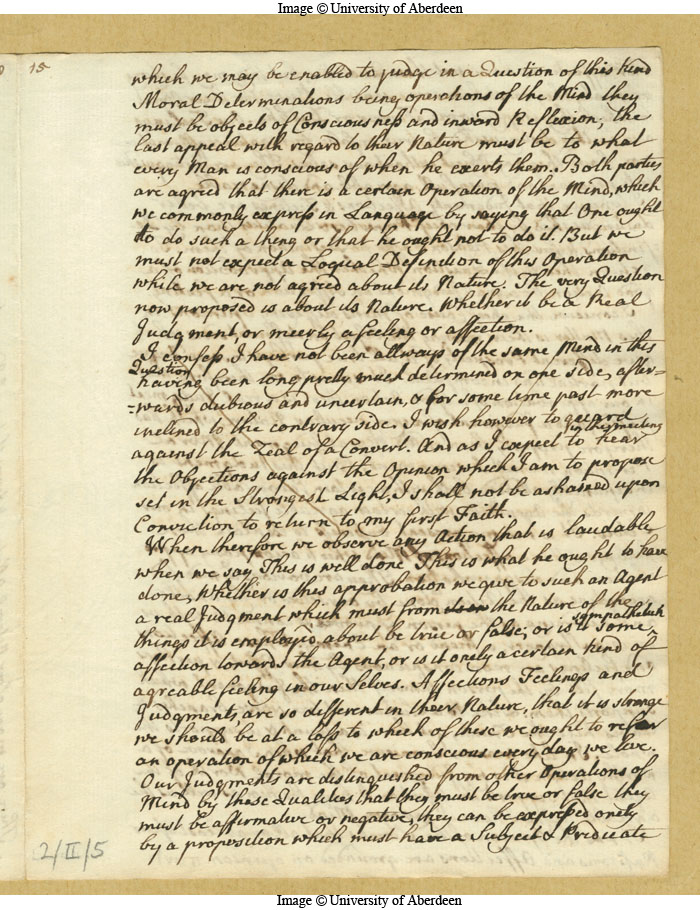 Image © University of Aberdeen
15
which we may be enabled to judge in a Question of this kind
Moral Determinations being operations of the Mind they
must be objects of Consciousness and inward Reflexion, the
last appeal with regard to their Nature must be to what
every Man is conscious of when he exerts them. Both parties
are agreed that there is a certain Operation of the Mind, which
we commonly express in Language by saying that One ought
to do such a thing or that he ought not to do it. But we
must not expect a Logical Definition of this Operation
while we are not agreed about its Nature. The very Question
now proposed is about its Nature. Whether it be a Real
Judgment, or meerly a feeling or affection.
I confess I have not been allways of the same Mind in this
Question
having been long pretty much determined on one side, after=
=wards dubious and uncertain, & for some time past more
inclined to the contrary side. I wish however to guard
against the Zeal of a Convert. And as I expect to hear
in this meeting
the Objections against the Opinion which I am to propose
set in the Strongest Light, I shall not be ashamed upon
Conviction to return to my first Faith.
When therefore we observe any Action that is laudable
when we say This is well done This is what he ought to have
done, Whether is this approbation we give to such an Agent
a real Judgment which must from the Nature of the
things it is employed about be true or false; or is it Some
sympathetick
affection towards the Agent, or is it onely a certain kind of
agreable feeling in our Selves. Affections Feelings and
Judgments are so different in their Nature, that it is strange
we should be at a loss to which of these we ought to refer
an operation of which we are conscious every day we live.
Our Judgments are distinguished from other Operations of
Mind by these Qualities that they must be true or false they
must be affirmative or negative, they can be expressed onely
by a proposition which must have a Subject & Predicate
2/II/5
Image © University of Aberdeen